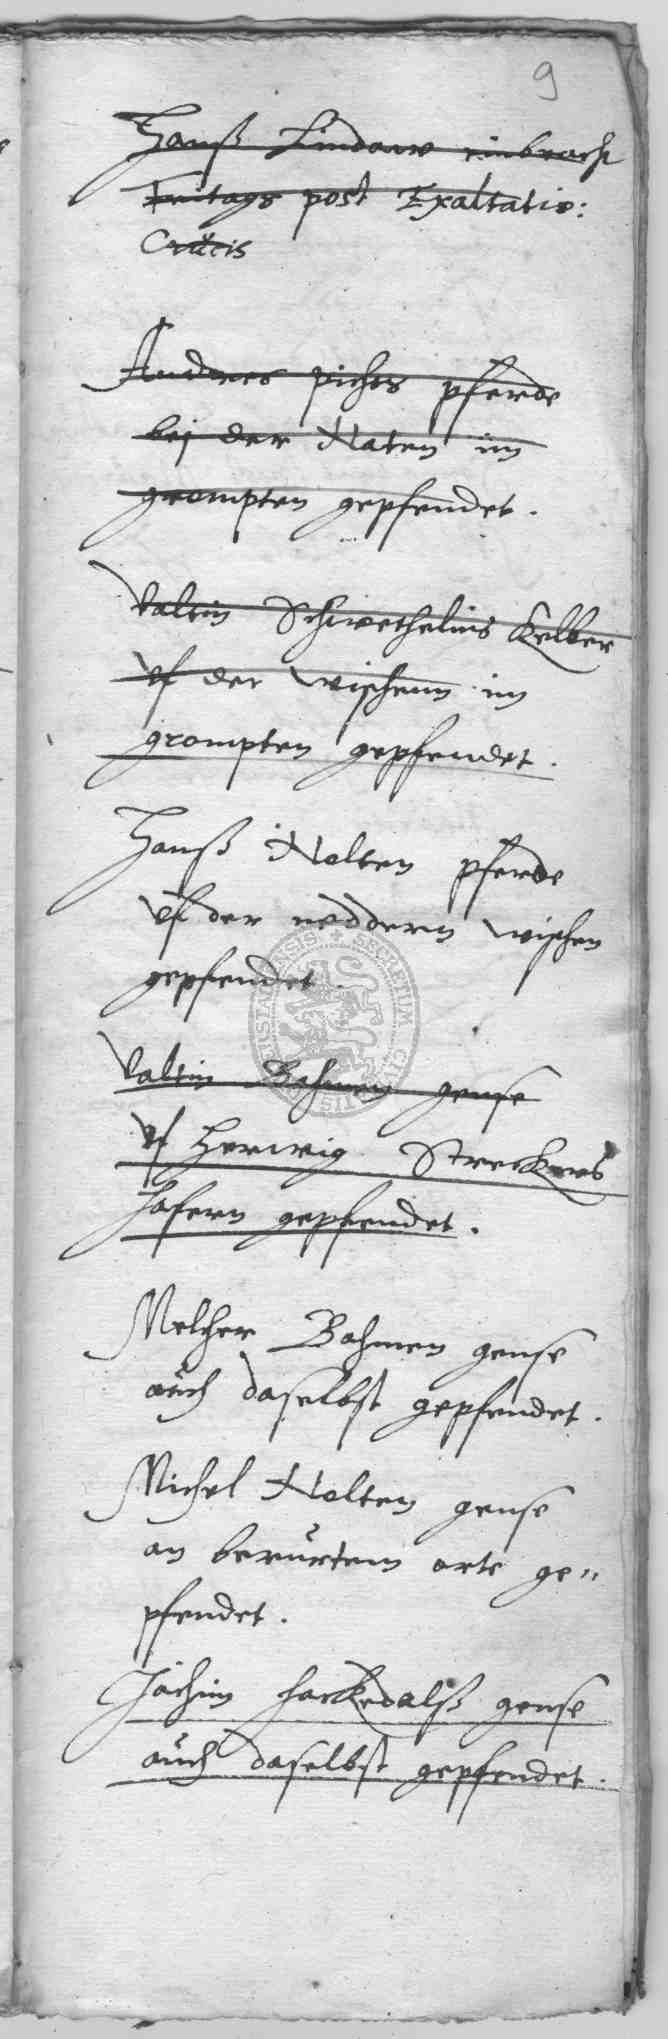 9
Hanß Lindaw einbracht
Freitags post Exaltatio:
Crucis
Andres pichts pferde
bei der Naten im
grompten gepfendet.
Valtin Schwethelms Kelber
vf der wischenn im
grompten gepfendet.
Hanß Nolten pferde
vf der neddern wischen
gepfendet.
Valtin Bahmen gense
vf Herwig Streckers
hafern gepfendet.
Melcher Bahmen gense
auch daselbst gepfendet.
Michel Nolten gense
an berurtem orte ge„
pfendet.
Jochim Hackedalß gense
auch daselbst gepfendet.